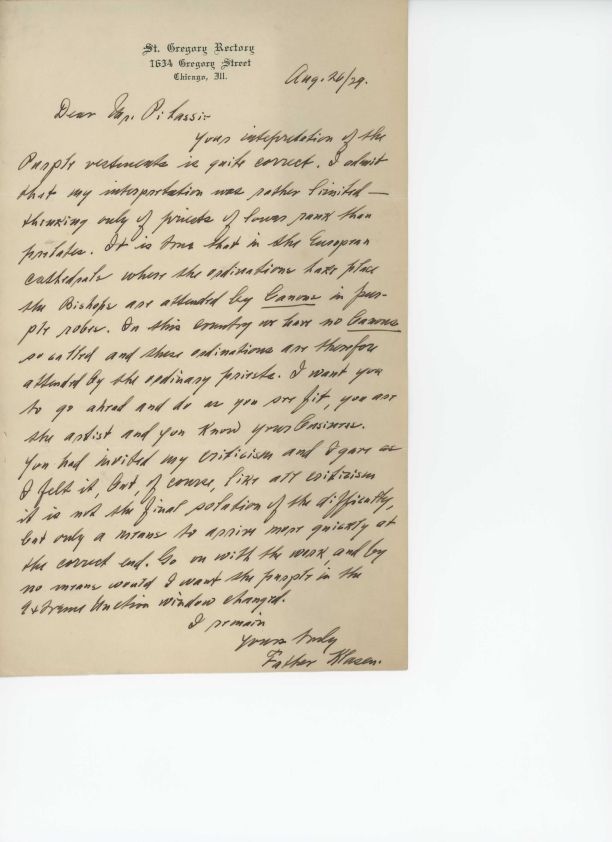 St. Gregory Rectory
1634 Gregory Street
Chicago, Ill.
Aug. 26/29.
Dear Mr. Pi Lassi:-
Your intepretation of the
Purple vestments is quite correct. I admit
that my interpretation was rather limited —
thinking only of priests of lower rank than
prelates. It is true that in the European
cathedrals where the ordinations take place
the Bishops are attended by Canons in pur-
ple robes. In this country we have no Canons
so called and these ordinations are therefore
attended by the ordinary priests. I want you
to go ahead and do as you see fit, you are
the artist and you know your business.
You had invited my criticism and I gave as
I felt it, but, of course, like all criticism
it is not the final solution of the difficulty,
but only a means to arrive more quickly at
the correct end. Go on with the work and by
no means would I want the purple in the
Extreme Unction window changed.
I remain
Yours truly
Father Klasen.